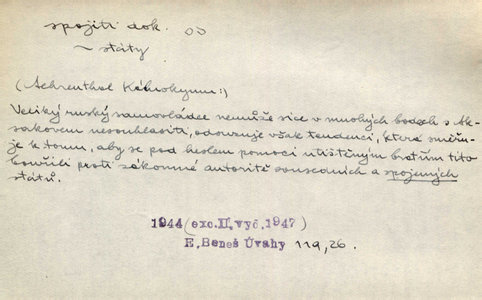 spojiti dok.
~ státy
(Aehrenthal Kálnokymu:)
Veliký ruský samovládce nemůže sice v mnohých bodech s Ak-
sakovem nesouhlasiti, odsuzuje však tendenci, která směřu-
je k tomu, aby se pod heslem pomoci utištěným bratřím tito
bouřili proti zákonné autoritě sousedních a spojených
států.
1944 (exc.II.vyč.1947)
E.Beneš Úvahy 119,26.